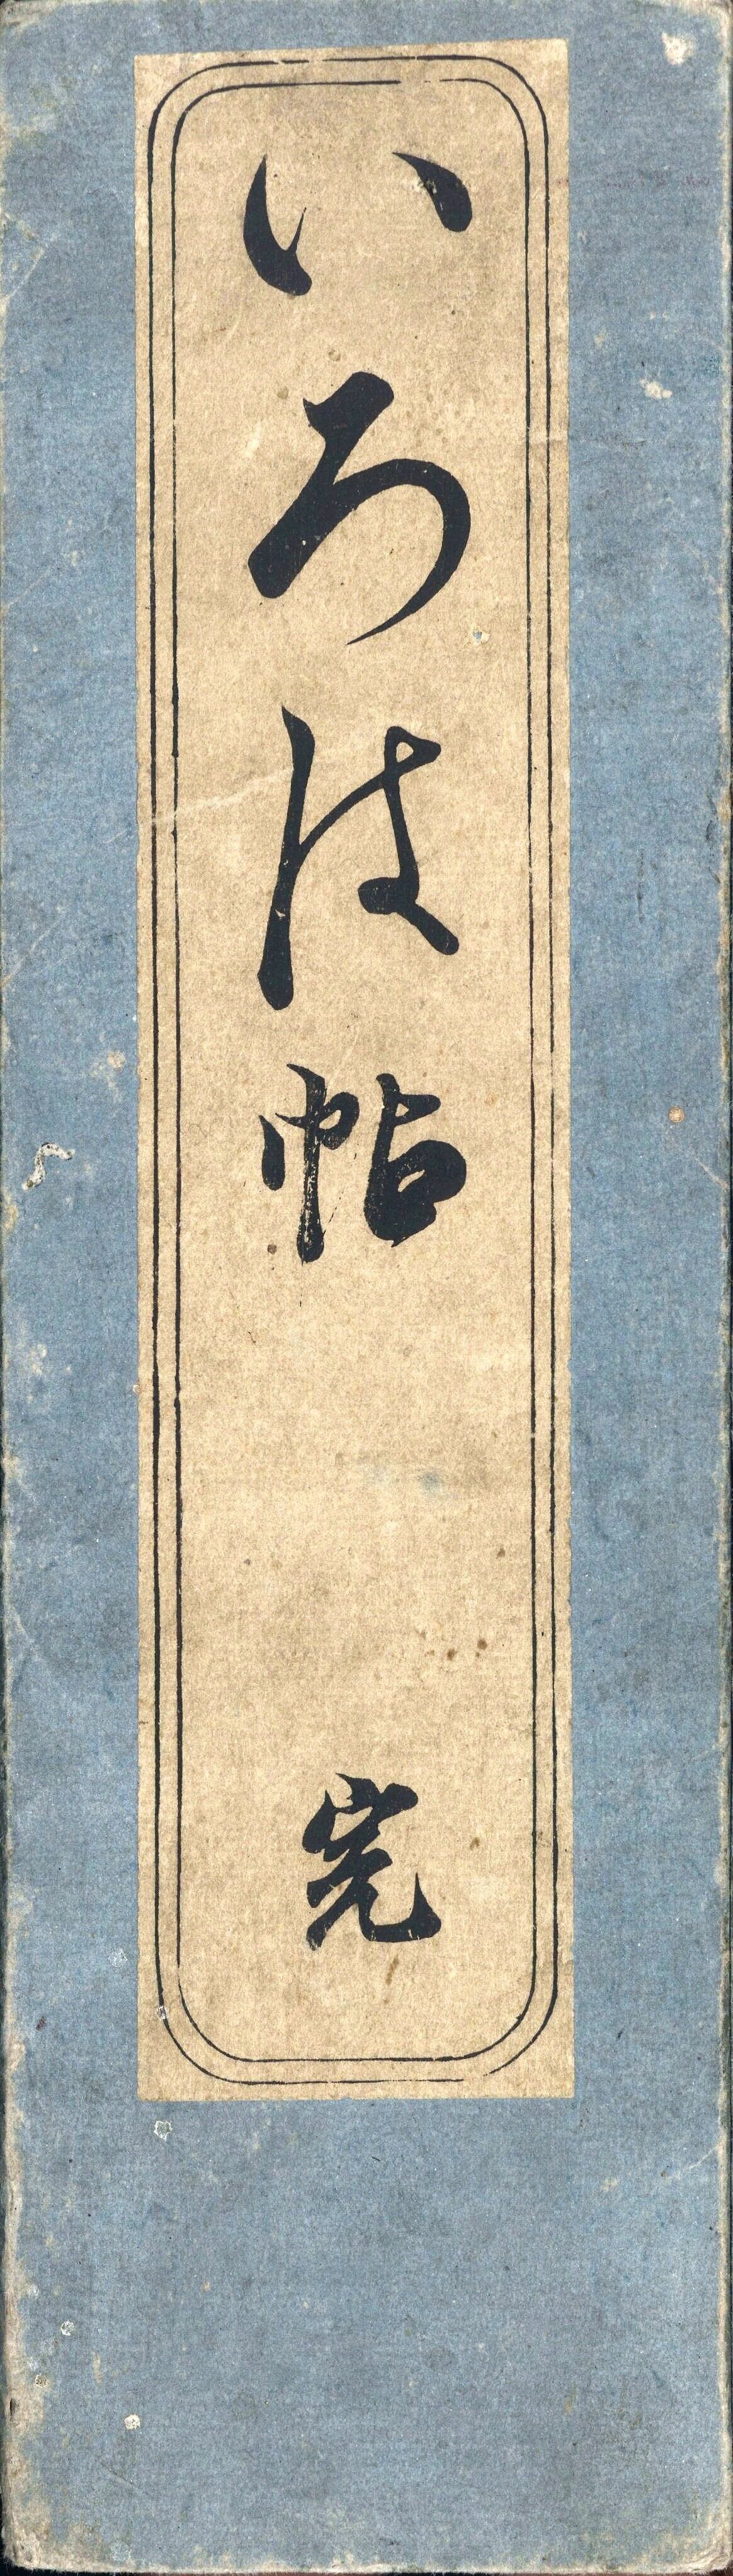 いろは帖 完